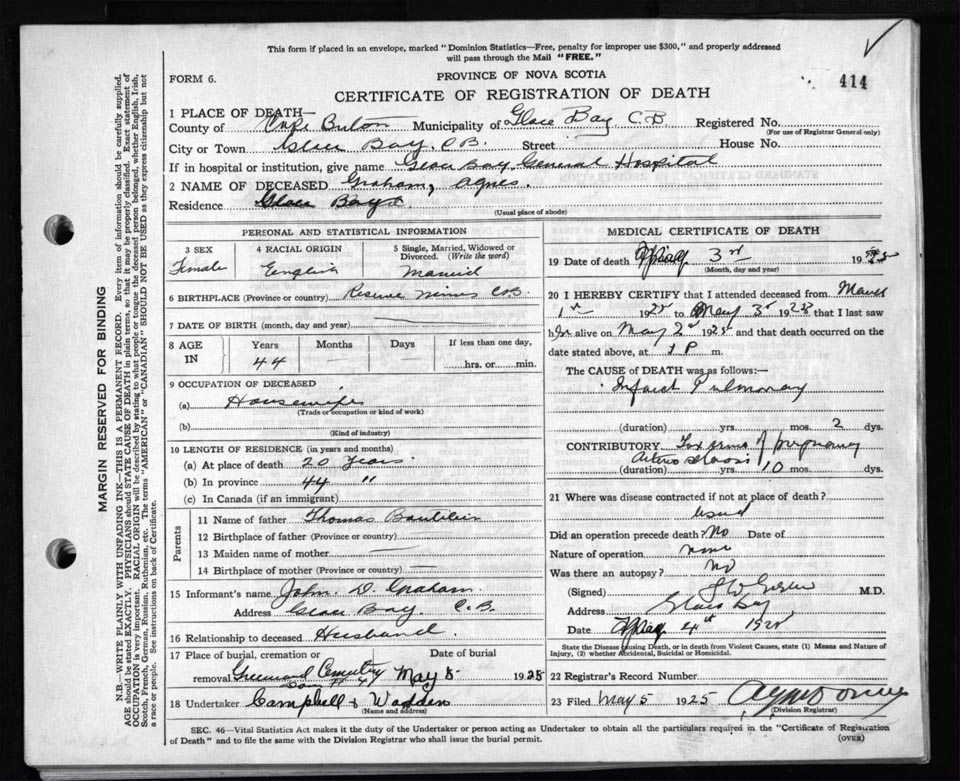 This form if placed in an envelope, marked "Dominion Statistics—Free, penalty for improper use $300," and properly addressed
will pass through the Mail "FREE."
FORM 6.
PROVINCE OF NOVA SCOTIA
414
CERTIFICATE OF REGISTRATION OF DEATH
1 PLACE OF DEATH—
County of Cape Breton Municipality of Glace Bay C.B Registered No.
(For use of Registrar General only)
City or Town Glace Bay. C.B. Street House No.
If in hospital or institution, give name Glace Bay General Hospital
2 NAME OF DECEASED Graham, Agnes.
Residence Glace Bay
(Usual place of abode)
PERSONAL AND STATISTICAL INFORMATION
3 SEX Female
4 RACIAL ORIGIN English
5 Single, Married, Widowed or Divorced. (Write the word) Married
6 BIRTHPLACE (Province or country) Reserve Mines C.B.
7 DATE OF BIRTH (month, day and year) —
8 AGE IN Years Months Days If less than one day,
44 — — hrs. or min.
9 OCCUPATION OF DECEASED
(a) Housewife
(Trade or occupation or kind of work)
(b)
(Kind of industry)
10 LENGTH OF RESIDENCE (in years and months)
(a) At place of death 20 Years.
(b) In province 44 "
(c) In Canada (if an immigrant)
Parents
11 Name of father Thomas
12 Birthplace of father (Province or country) —
13 Maiden name of mother —
14 Birthplace of mother (Province or country) —
15 Informant's name John. D. Graham.
Address Glace Bay. C.B.
16 Relationship to deceased Husband.
17 Place of burial, cremation or Date of burial
removal Greenwood Cemetery May 5 1925
18 Undertaker Campbell & Wadden
(Name and address)
MEDICAL CERTIFICATE OF DEATH
19 Date of death May 3rd 19
(Month, day and year)
20 I HEREBY CERTIFY that I attended deceased from March
1st 1925 to May 3rd that I saw
her alive on May 2nd 1925 and that death occurred on the
date stated above, at 1 P m.
The CAUSE of DEATH was as follows:—
Infarct Pulmonary
(duration) yrs. mos. 2 dys.
CONTRIBUTORY of pregnancy
(duration) yrs. 10 mos. dys.
21 Where was disease contracted if not at place of death?
Did an operation precede death? No Date of
Nature of operation none
Was there an autopsy? No
(Signed) M.D.
Address Glace Bay
Date May 4th 1925
State the Disease Causing Death, or in death from Violent Causes, state (1) Means and Nature of
Injury, (2) whether Accidental, Suicidal or Homicidal.
22 Registrar's Record Number
23 Filed May 5 1925
(Division Registrar)
SEC. 46—Vital Statistics Act makes it the duty of the Undertaker or person acting as Undertaker to obtain all the particulars required in the "Certificate of Registration
of Death" and to file the same with the Division Registrar who shall issue the burial permit.
(OVER)
MARGIN RESERVED FOR BINDING
N.B.—WRITE PLAINLY WITH UNFADING INK—THIS IS A PERMANENT RECORD. Every item of information should be carefully supplied.
AGE should be stated EXACTLY. PHYSICIANS should STATE CAUSE OF DEATH in plain terms, so that it may be properly classified. Exact statement of
OCCUPATION is very important. RACIAL ORIGIN will be described by stating to what people or tongue the deceased person belonged, whether English, Irish,
Scotch, French, German, Russian, Ruthenian, etc. The terms "AMERICAN" or "CANADIAN" SHOULD NOT BE USED as they express citizenship but not
a race or people. See instructions on back of Certificate.